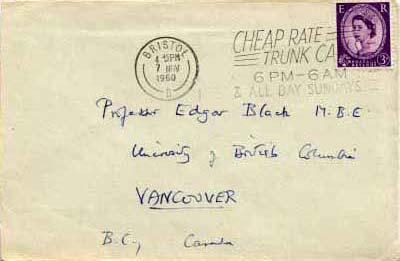 BRISTOL
4 15PM
7 NOV
1960
B
CHEAP RATE
TRUNK CA
6PM-6AM
& ALL DAY SUNDAYS
E R
3D
Professor Edgar Black M.B.E.
University of British Columbia
VANCOUVER
B.C., Canada